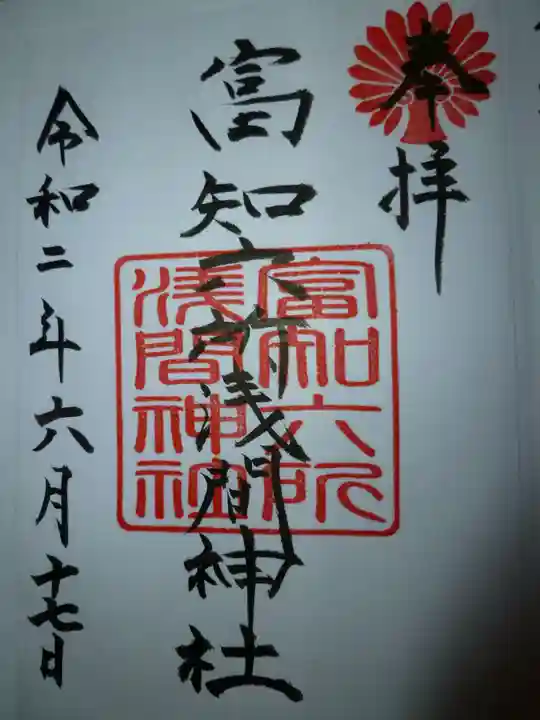 奉拝
富知六所浅間神社
富知六所
浅間神社
令和二年六月十七日